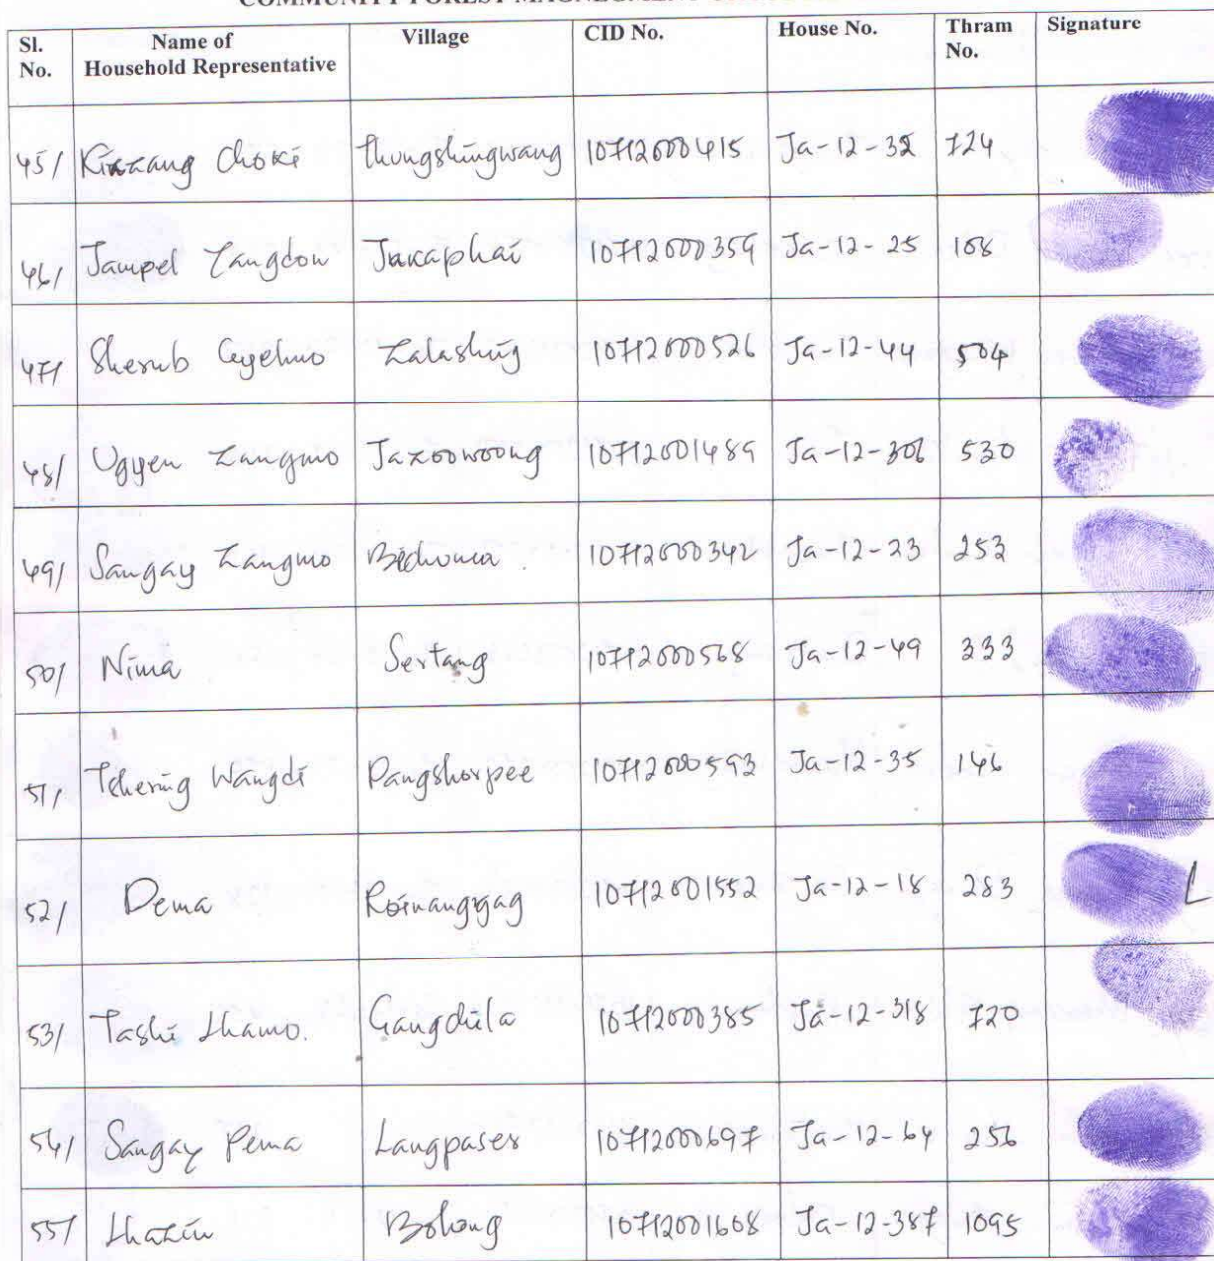 COMMUNITY FOREST
Sl. No. Name of Household Representative Village CID No. House No. Thram No. Signature
45/ Kinzang Choki thungshingwang 10712000415 Ja-12-32 724
46/ Jampel Zangdon Jakaphai 10712000359 Ja-12-25 108
47/ Sherub Gyelmo Zalashing 10712000526 Ja-12-44 504
48/ Ugyen Zangmo Jazoowoong 10712001489 Ja-12-306 530
49/ Sangay Zangmo 10712000342 Ja-12-23 253
50/ Nima Sertang 10712000568 Ja-12-49 333
51/ Tshering Wangdi Pangshorpee 10712000593 Ja-12-35 146
52/ Dema 10712001552 Ja-12-18 283 L
53/ Tashi Lhamo. Gangdula 10712000385 Ja-12-318 720
54/ Sangay Pema Langpaser 10712000697 Ja-12-64 256
55/ Lhazin Bolong 10712001608 Ja-12-387 1095